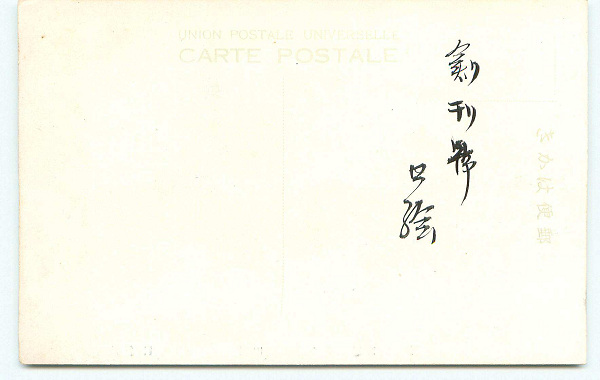 UNION POSTALE UNIVERSELLE
CARTE POSTALE
創刊號
口絵
郵便はかき